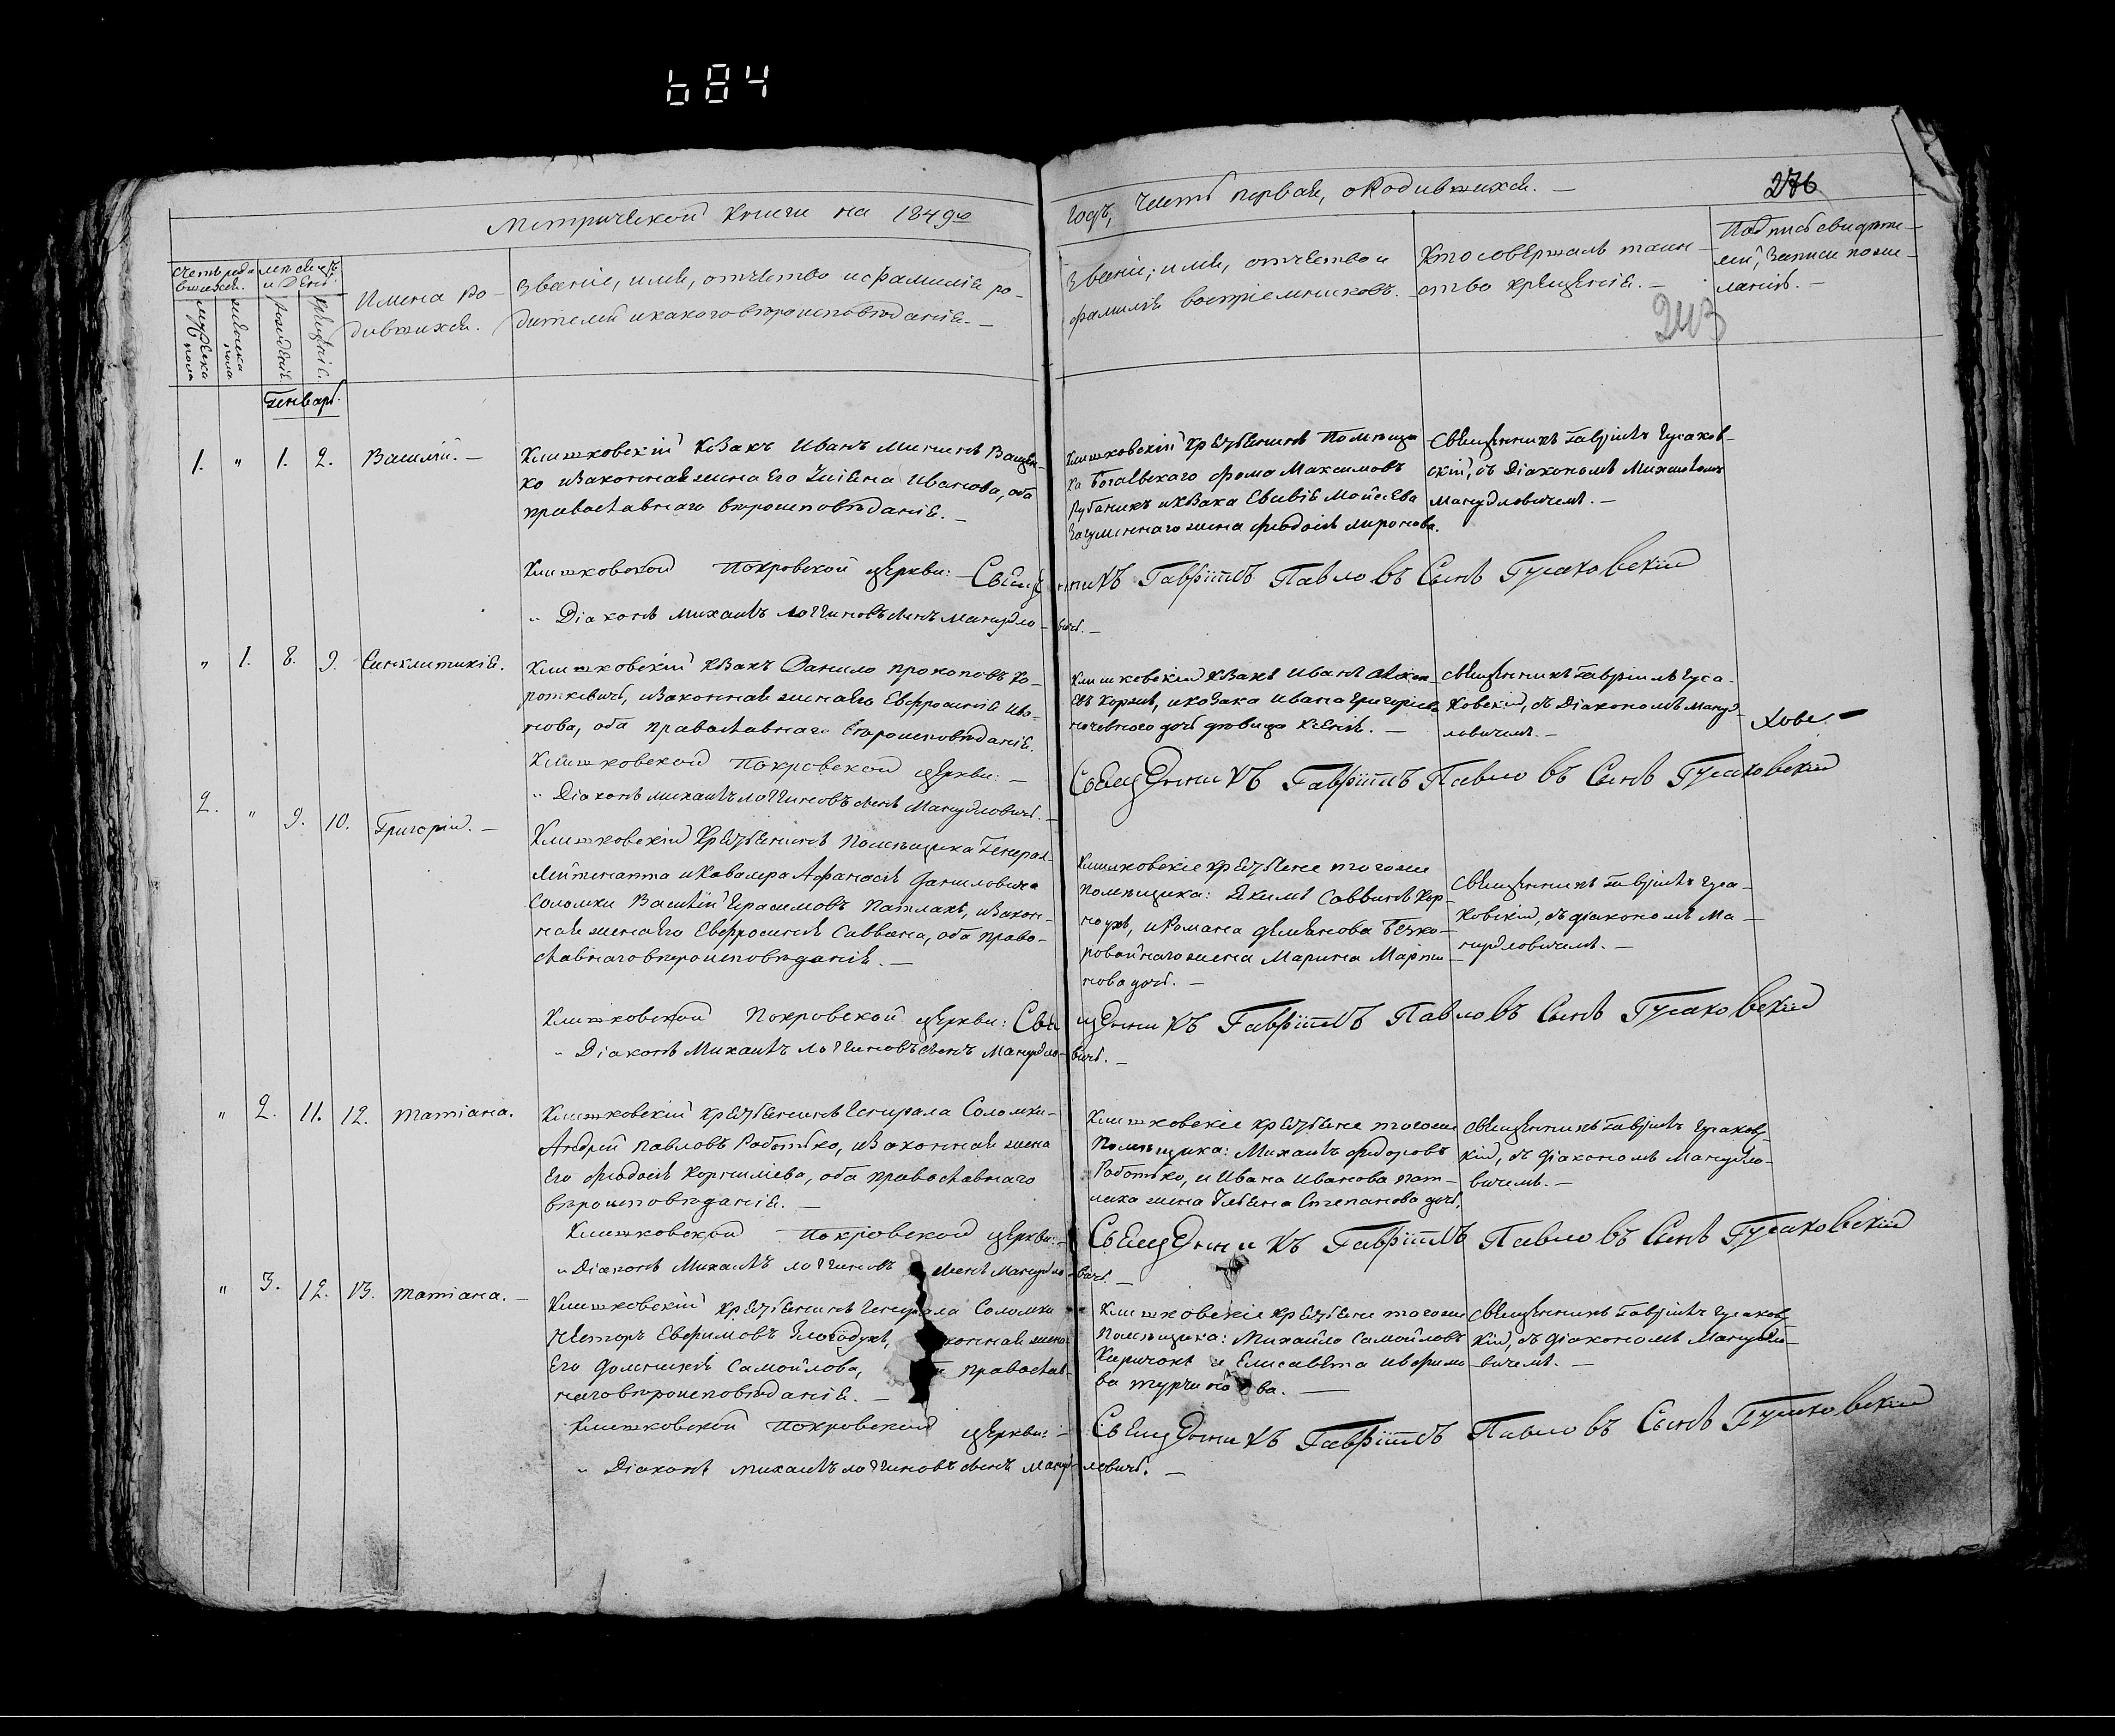 684
Метрической книги на 1849й
годъ, Часть первая, о Родившихся. —
276
243
Счетъ роди-
вшихся.
мѣсяцъ
и День.
Мужеска
пола
женска
пола
рожденія.
крещенія.
Имена Ро-
дившихся.
Званіе, имя, отчество и фамилія ро-
дителей и какого вѣроисповѣданія. —
Званіе, имя, отчество и
фамилія воспріемниковъ. —
Кто совершалъ таин-
ство крещенія. —
Подпись свидѣте-
лей, Записи по же-
ланію. —
Генварь.
1. " 1. 2. Василій. —
Клишковскій Козакъ Иванъ Мининъ Ващен-
ко и законная жена его Ивановa, оба
православнаго вѣроисповѣданія. —
Клишковскій крестьянинъ Помѣщи-
ка Фома Максимовъ
Рубаникъ и козака Моисеева
жена Феодосія Миронова.
Священникъ Гавріилъ Гусаков-
скій, съ Діакономъ Михаиломъ
Мануйловичемъ. —
Клишковской Покровской церкви: Священникъ Гавріилъ Павловъ Сынъ Гусаковскій
" Діаконъ Михаилъ Логгиновъ сынъ Мануйловичъ. —
" 1. 8. 9. Синклитикія.
Клишковскій козакъ Данило Прокоповъ Ко-
роткевичъ, и законная жена его Евфросинія Ива-
нова, оба православнаго вѣроисповѣданія.
Клишковскій козакъ Иванъ Алексѣ-
евъ Коржъ, и козака Ивана Григорьева
дочь дѣвица Ксенія. —
Священникъ Гавріилъ Гуса-
ковскій, съ Діакономъ Мануй-
ловичемъ. —
Клишковской Покровской церкви: —
Священникъ Гавріилъ Павловъ Сынъ Гусаковскій
" Діаконъ Михаилъ Логгиновъ сынъ Мануйловичъ. —
2. " 9. 10. Григорій. —
Клишковскій крестьянинъ Помѣщика Генерал-
лейтенанта и Кавалера Афанасія Даниловича
Соломки Василій Герасимовъ Патлахъ, и закон-
ная жена его Евфросинія Саввина, оба право-
славнаго вѣроисповѣданія. —
Клишковскіе крестьяне того же
помѣщика: Якимъ Саввинъ Кор-
ноухъ, и Романа Демьянова Безко-
ровайнаго жена Марина Марти-
нова дочь. —
Священникъ Гавріилъ Гуса-
ковскій, съ діакономъ Ма-
нуйловичемъ. —
Клишковской Покровской церкви: Священникъ Гавріилъ Павловъ Сынъ Гусаковскій
" Діаконъ Михаилъ Логгиновъ сынъ Мануйловичъ. —
" 2. 11. 12. Татіана.
Клишковскій крестьянинъ Генерала Соломки —
Андрей Павловъ Работько, и законная жена
его Феодосія Корнилієва, оба православнаго
вѣроисповѣданія. —
Клишковскіе крестьяне того же
Помѣщика: Михаилъ Федоровъ
Работько, и Ивана Иванова Пат-
лаха жена Ульяна Степанова дочь.
Священникъ Гавріилъ Гусаков-
кій, съ діакономъ Мануйло-
вичемъ. —
Клишковской Покровской церкви: —
Священникъ Гавріилъ Павловъ Сынъ Гусаковскій
" Діаконъ Михаилъ Логгиновъ сынъ Мануйловичъ. —
" 3. 12. 13. Татіана. —
Клишковскій крестьянинъ Генерала Соломки
Несторъ Евфимовъ конная жена
его Домникія Самойлова, православ-
наго вѣроисповѣданія. —
Клишковскіе крестьяне того же
Помѣщика: Михайло Самойловъ
Киричокъ и Елисавета Ивфимо-
ва Турчинова. —
Священникъ Гавріилъ Гусаков-
кій, съ діакономъ Мануйло-
вичемъ. —
Клишковской Покровской церкви: —
Священникъ Гавріилъ Павловъ Сынъ Гусаковскій
" Діаконъ Михаилъ Логгиновъ сынъ Мануйловичъ. —